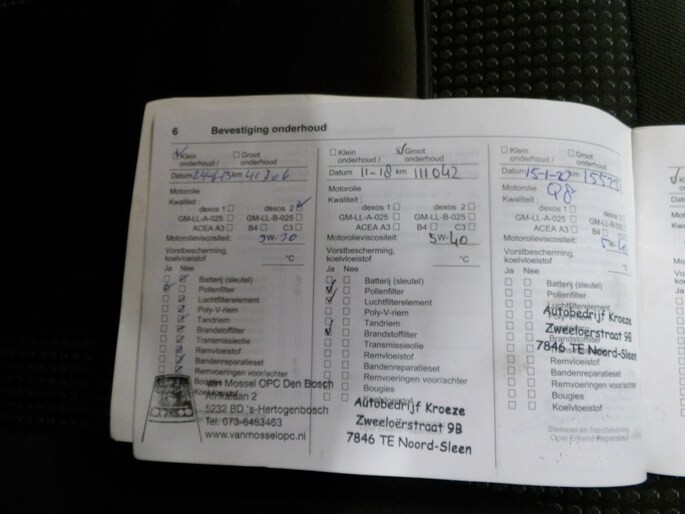 6 Bevestiging onderhoud
Klein onderhoud /
Groot onderhoud
Datum km 41206
Motorolie
Kwaliteit
dexos 1 dexos 2
GM-LL-A-025 GM-LL-B-025
ACEA A3 B4 C3
Motorolieviscositeit:
Vorstbescherming,
koelvloeistof °C
Ja Nee
Batterij (sleutel)
Pollenfilter
Luchtfilterelement
Poly-V-riem
Tandriem
Brandstoffilter
Transmissieolie
Remvloeistof
Bandenreparatieset
Remvoeringen voor/achter
Bougies
Koelvloeistof
Van Mossel OPC Den Bosch
5232 BD 's-Hertogenbosch
Tel. 073-6463463
www.vanmosselopc.nl
Klein onderhoud /
Groot onderhoud
Datum 11-18 km 111042
Motorolie
Kwaliteit
dexos 1 dexos 2
GM-LL-A-025 GM-LL-B-025
ACEA A3 B4 C3
Motorolieviscositeit: 5W-40
Vorstbescherming,
koelvloeistof °C
Ja Nee
Batterij (sleutel)
Pollenfilter
Luchtfilterelement
Poly-V-riem
Tandriem
Brandstoffilter
Transmissieolie
Remvloeistof
Bandenreparatieset
Remvoeringen voor/achter
Bougies
Koelvloeistof
Autobedrijf Kroeze
Zweeloërstraat 9B
7846 TE Noord-Sleen
Klein onderhoud /
Groot onderhoud
Datum 15-1-20 km
Motorolie Q8
Kwaliteit
dexos 1 dexos 2
GM-LL-A-025 GM-LL-B-025
ACEA A3 B4 C3
Motorolieviscositeit:
Vorstbescherming,
koelvloeistof °C
Ja Nee
Batterij (sleutel)
Pollenfilter
Luchtfilterelement
Autobedrijf Kroeze
Zweeloërstraat 9B
7846 TE Noord-Sleen
Remvloeistof
Bandenreparatieset
Remvoeringen voor/achter
Bougies
Koelvloeistof